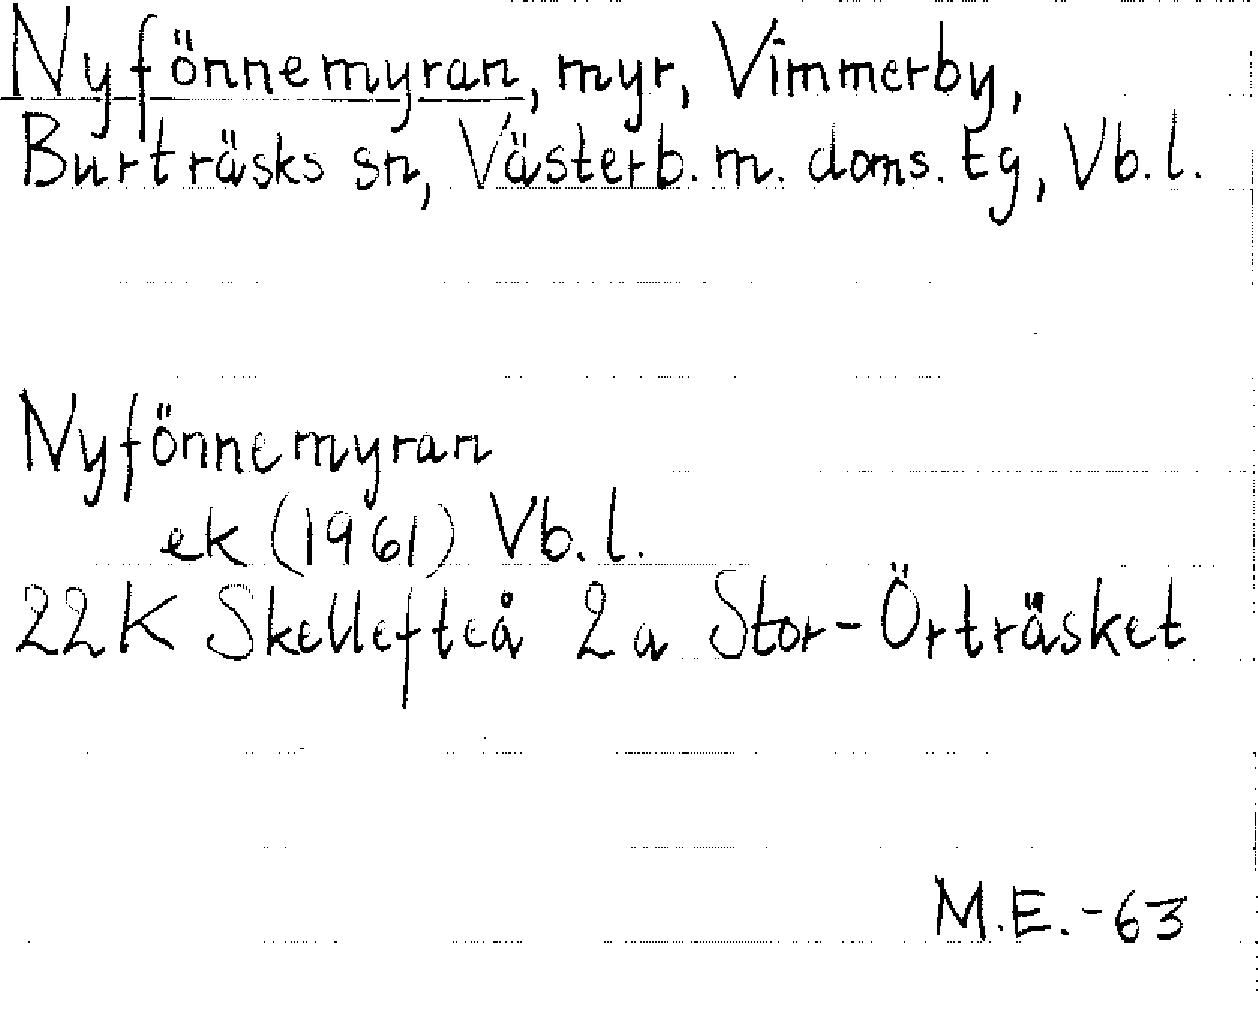 Nyfönnemyran, myr, Vimmerby,
Burträsks sn, Västerb. m. doms. tg, Vb. l.
Nyfönnemyran
ek (1961) Vb. l.
22K Skellefteå 2a Stor-Örträsket
M.E.-63